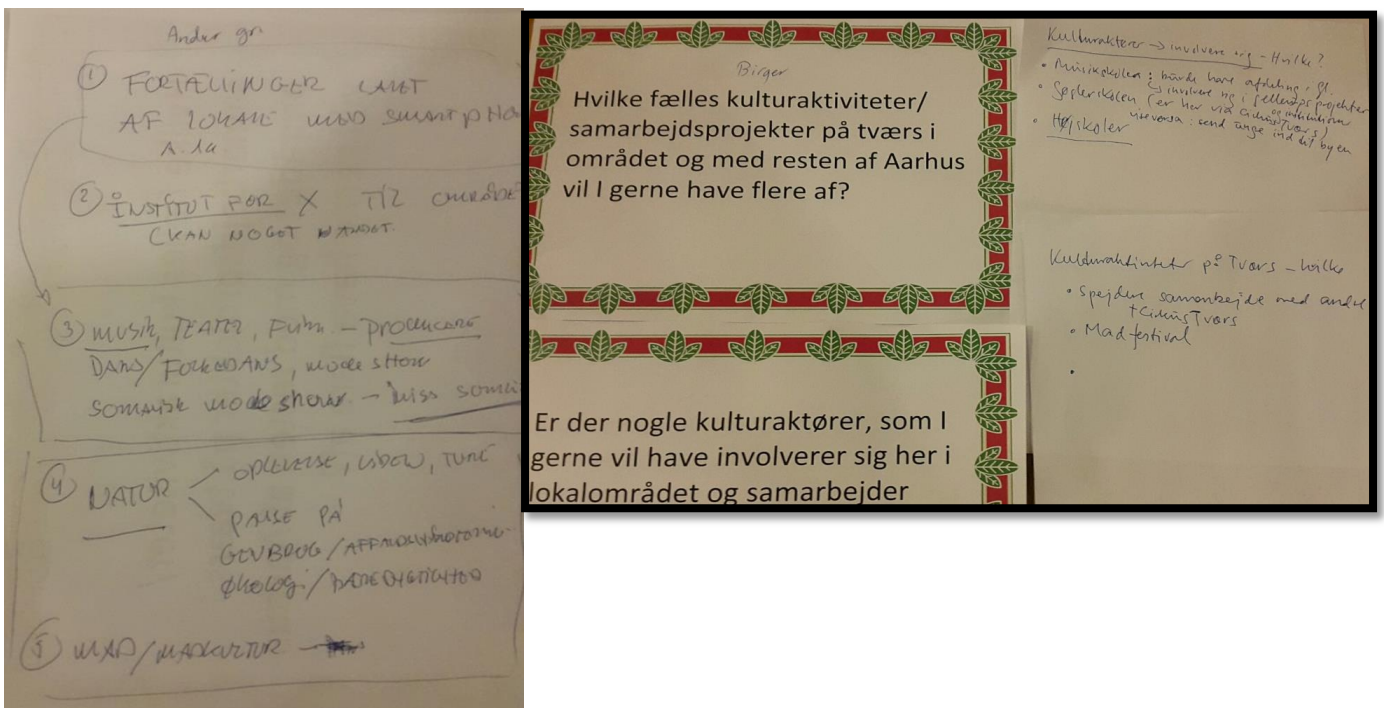 ① FORTÆLLINGER LAVET
AF LOKALE MED SMARTPHO
A. la
② INSTITUT FOR X TIL OMRÅDE
(KAN NOGET ANDET.
③ MUSIK, TEATER, FILM – PRODUCERE
DANS/FOLKEDANS, MODESHOW
SOMALISK MODE SHOW – MISS SOMALI
④ NATUR
OPLEVELSE, VIDEN, TURE
PASSE PÅ
GENBRUG/
ØKOLOGI/BÆREDYGTIGHED
⑤ MAD/MADKULTUR
Birger
Hvilke fælles kulturaktiviteter/
samarbejdsprojekter på tværs i
området og med resten af Aarhus
vil I gerne have flere af?
Er der nogle kulturaktører, som I
gerne vil have involverer sig her i
lokalområdet og samarbejder
Kulturaktører → involvere sig – Hvilke?
• Musikskolen: burde have afdeling i gl.
↳ involvere sig i Gellerupprojekter
• Gøglerskolen (er her via CirkusTværs)
viceversa: send unge ind til byen
• Højskoler
Kulturaktiviteter på Tværs – hvilke
• Spejdere samarbejde med andre
+ CirkusTværs
• Madfestival
•